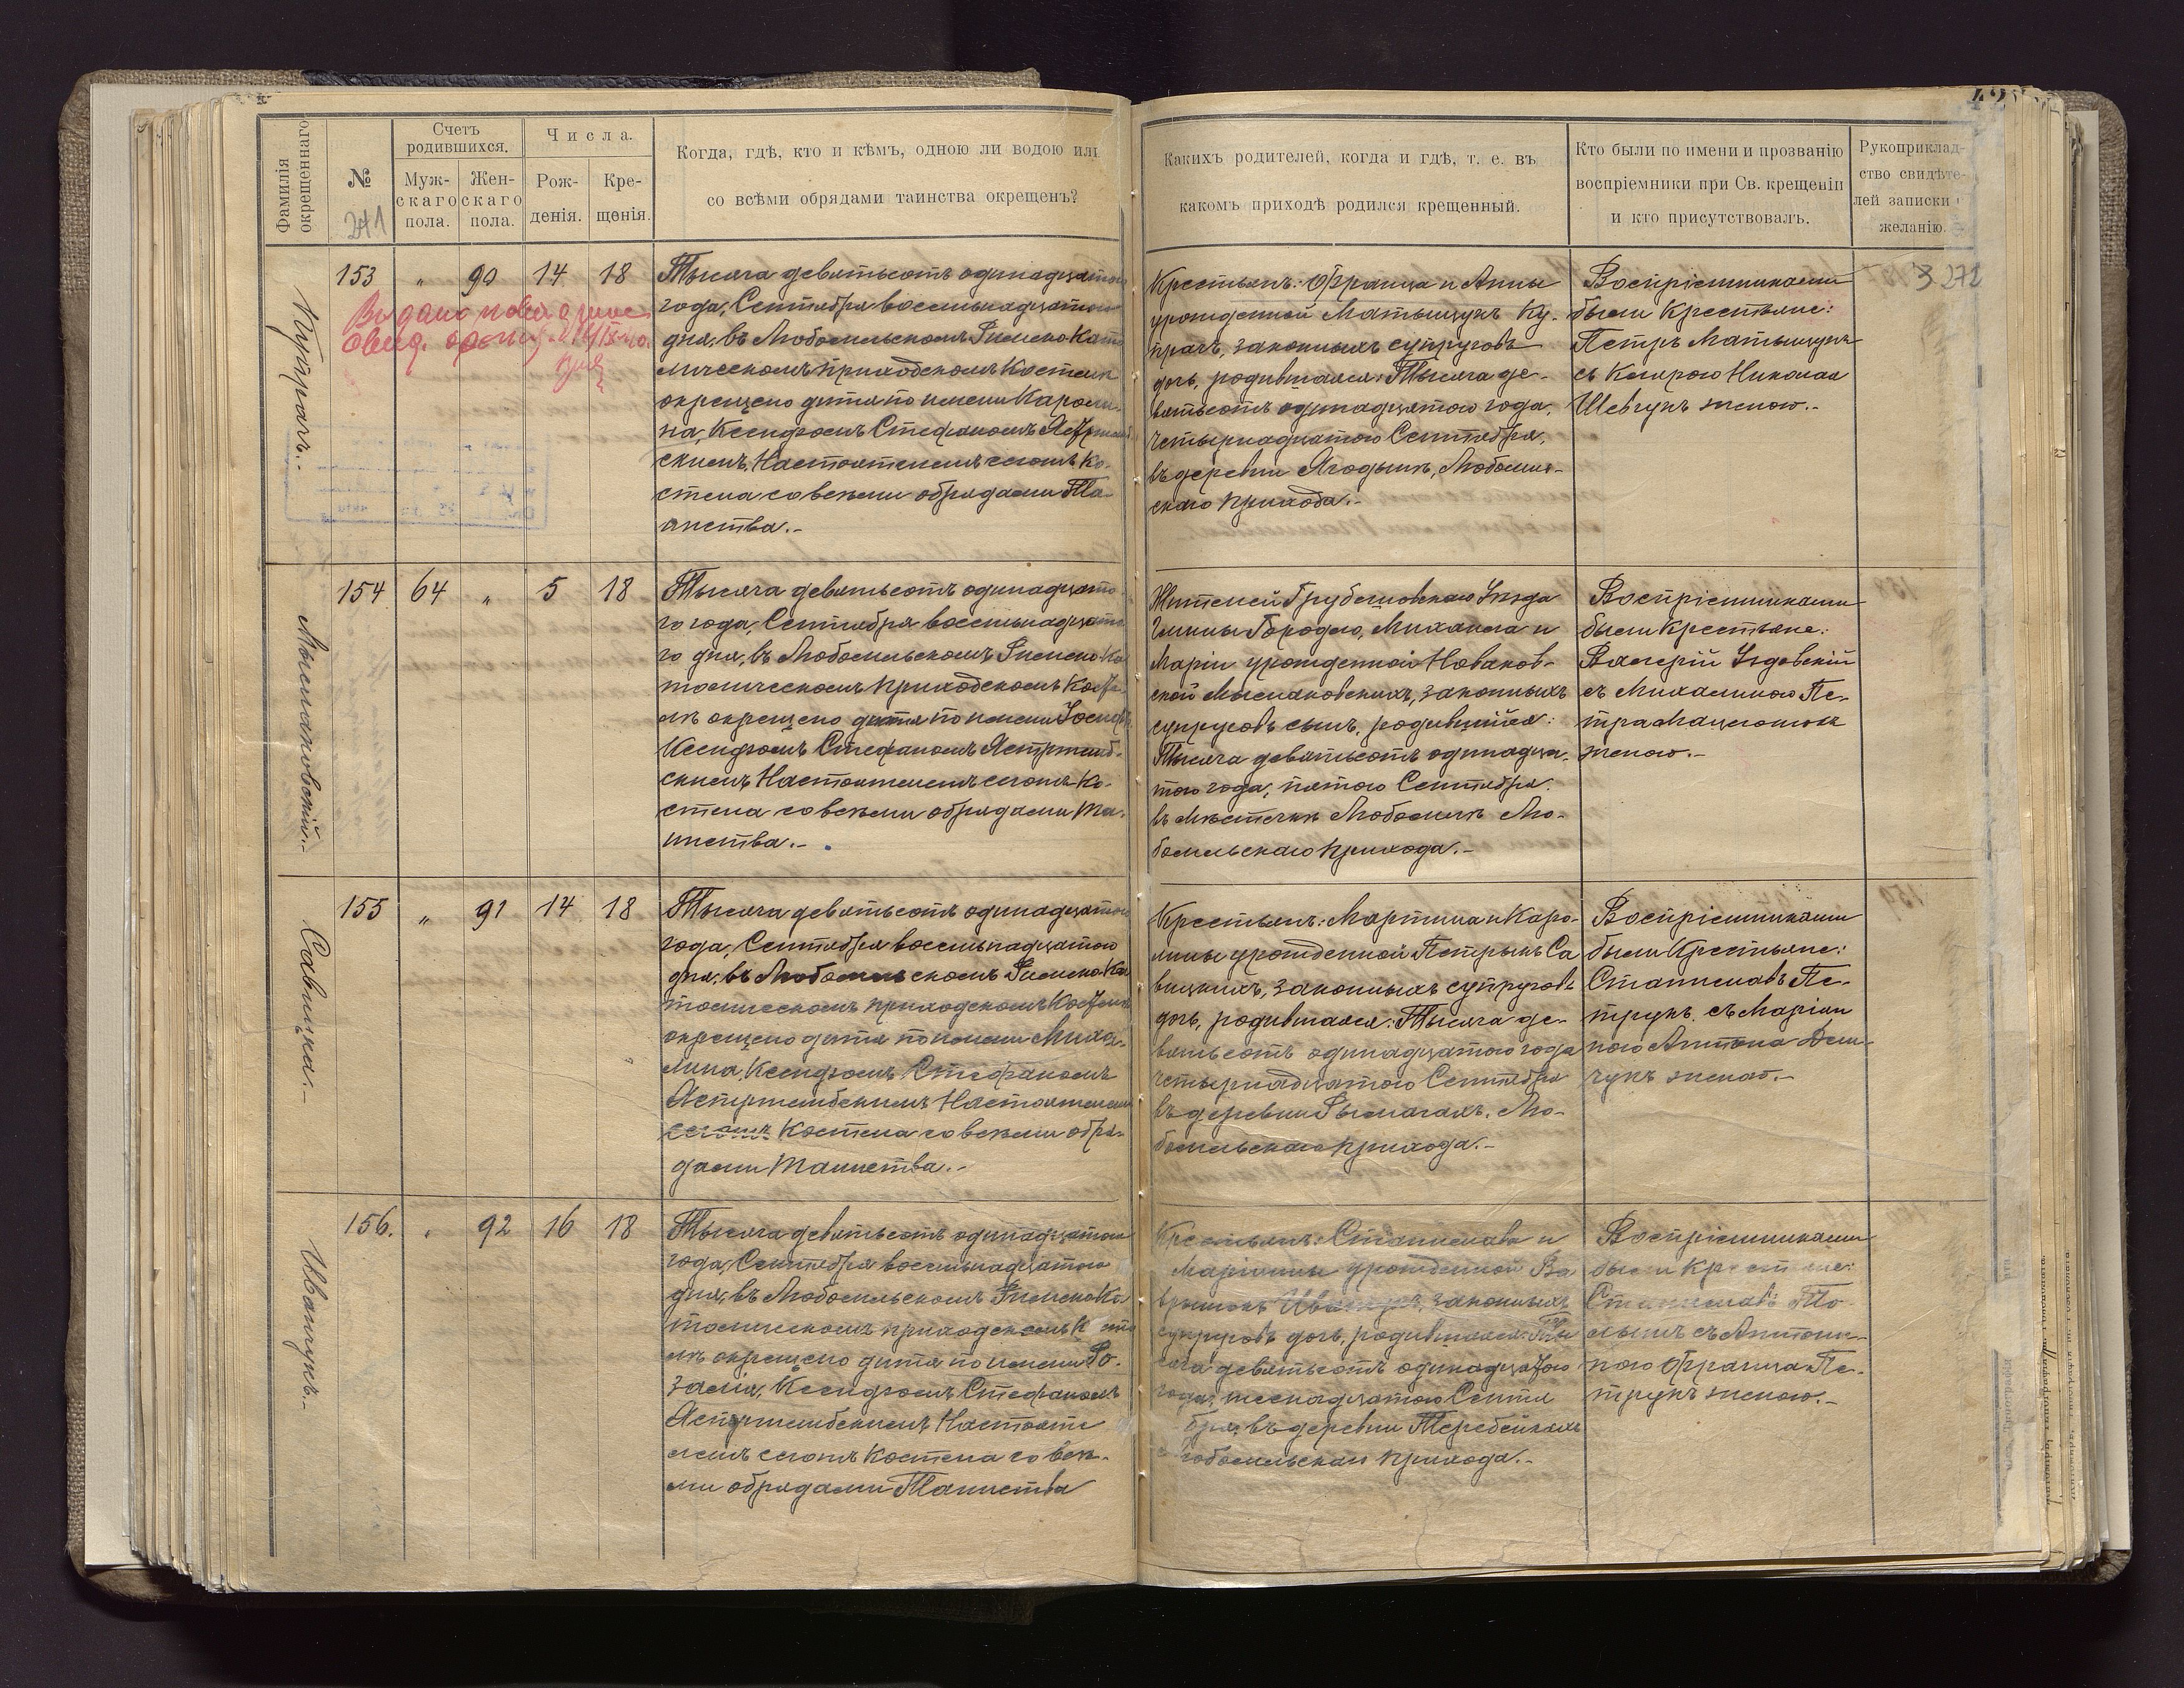 Фамилія окрещеннаго
№
241
Счетъ родившихся.
Муж-
скаго
пола.
Жен-
скаго
пола.
Числа.
Рож-
денія.
Кре-
щенія.
Когда, гдѣ, кто и кѣмъ, одною ли водою или
со всѣми обрядами таинства окрещенъ?
Какихъ родителей, когда и гдѣ, т. е. въ
какомъ приходѣ родился крещенный.
Кто были по имени и прозванію
воспріемники при Св. крещеніи
и кто присутствовалъ.
Рукоприклад-
ство свидѣте-
лей записки
желанію.
272
153 " 90 14 18
Тысяча девятьсотъ одинадцатого
года, Сентября восемьнадцатого
дня, въ Любомльскомъ Римско Като
лическомъ приходскомъ Костелѣ
окрещено дитя по имени Кароли-
на, Ксендзомъ Стефаномъ Ястржемб
скимъ, Настоятелемъ сегожъ Ко-
стела со всѣми обрядами Та
инства.-
Крестьянъ: Франца и Анны
урожденной Матыщукъ Ку-
прачъ, законныхъ супруговъ
дочь, родившаяся: Тысяча де-
вятьсотъ одинадцатого года,
четырнадцатого Сентября,
въ деревни Ягодынѣ, Любомль-
скаго прихода.-
Воспріемниками
были Крестьяне:
Петръ Матыщукъ
съ Николая
Шевчукъ женою.-
154 64 " 5 18
Мысляковскій.-
Тысяча девятьсотъ одинадцато-
го года, Сентября восемьнадцато
го дня, въ Любомльскомъ Римско Ка
толическомъ приходскомъ Косте-
лѣ окрещено дитя по имени Іосифъ
Ксендзомъ Стефаномъ Ястржемб-
скимъ Настоятелемъ сегожъ Ко-
стела со всѣми обрядами Та-
инства.-
Жителей Грубешовскаго Уѣзда
Гмины Городло, Михаила и
Маріи урожденной Новаков-
ской Мысляковскихъ, законныхъ
супруговъ сынъ, родившійся:
Тысяча девятьсотъ одинадца-
того года, пятого Сентября.
въ Мѣстечкѣ Любомлѣ Лю-
бомльскаго прихода.-
Воспріемниками
были Крестьяне:
Валерій Уздовскій
съ Михалиною Пе-
тра
женою.-
155 " 91 14 18
Савицка.-
Тысяча девятьсотъ одинадцатого
года, Сентября восемьнадцатого
дня, въ Любомльскомъ Римско Ка
толическомъ приходскомъ Костелѣ
окрещено дитя по имени Миха-
лина, Ксендзомъ Стефаномъ
Ястржембскимъ Настоятелемъ
сегожъ Костела со всѣми обря-
дами Таинства.-
Крестьянъ: Мартина и Каро-
лины урожденной Петрыкъ Са
вицкихъ, законныхъ супруговъ
дочь, родившаяся: Тысяча де-
вятьсотъ одинадцатого года
четырнадцатого Сентября
въ деревни Рымачахъ, Лю-
бомльскаго прихода.-
Воспріемниками
были Крестьяне:
Станиславъ Пе-
трукъ съ Маріян
ною Антона Дем-
чукъ женою.-
156. " 92 16 18
Иванчукъ.-
Тысяча девятьсотъ одинадцатого
года, Сентября восемьнадцатого
дня, въ Любомльскомъ Римско Ка
толическомъ приходскомъ Косте
лѣ окрещено дитя по имени Ро-
залія, Ксендзомъ Стефаномъ
Ястржембскимъ Настояте
лемъ сегожъ Костела со всѣ-
ми обрядами Таинства
Крестьянъ: Станислава и
Маріянны урожденной Ва
законныхъ
супруговъ дочь, родившаяся: Ты
сяча девятьсотъ одинадцатого
года, шеснадцатого Сентя
бря, въ деревни Теребейкахъ
Любомльскаго прихода.-
Воспріемниками
были Крестьяне:
Станиславъ
съ Антони-
ною Франца Пе-
трукъ женою.-